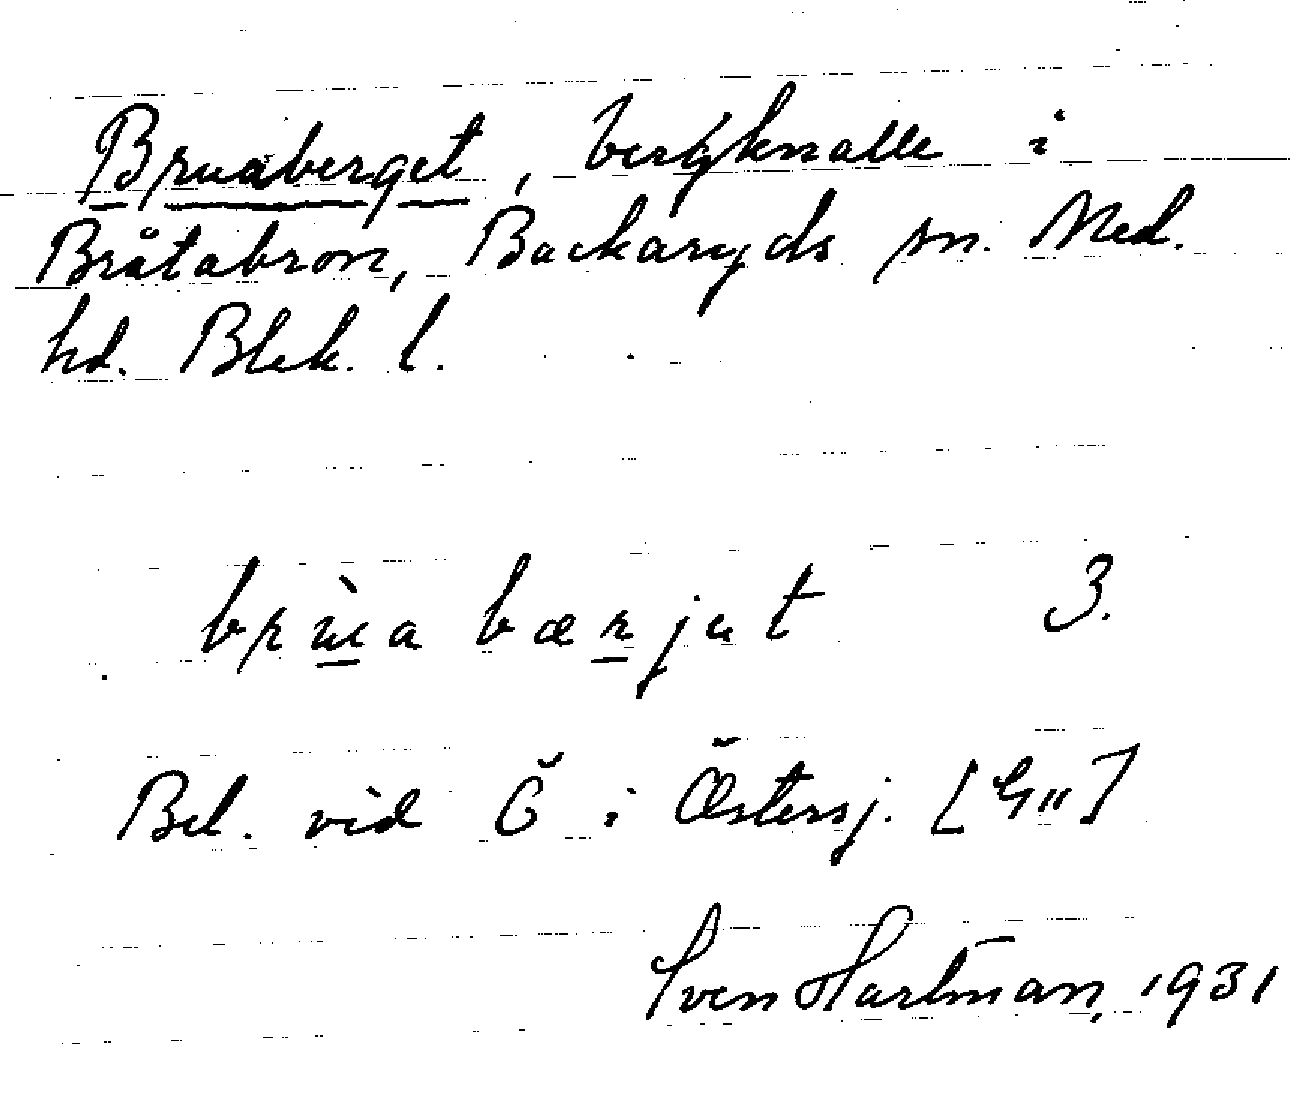 Bruaberget, bergknalle i
Bråtabron, Backaryds sn. Med.
hd. Blek. l.
brùa bærjut 3.
Bel. vid Ŏ i Östersj. [G11]
Sven Hartman, 1931